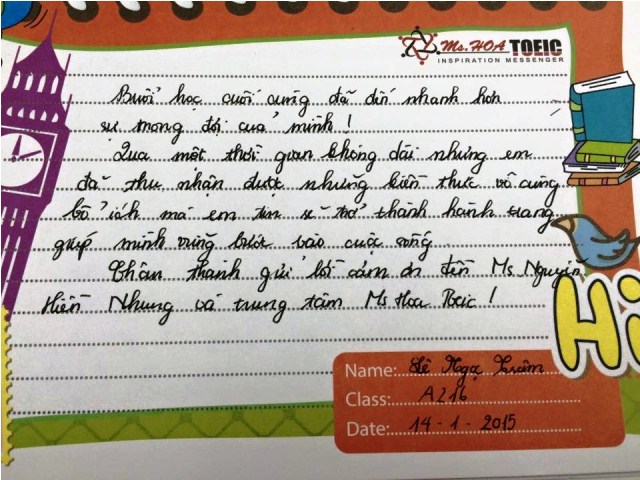 Ms.HOA TOEIC
INSPIRATION MESSENGER
Buổi học cuối cùng đã đến nhanh hơn
sự mong đợi của mình !
Qua một thời gian không dài nhưng em
đã thu nhận được những kiến thức vô cùng
bổ ích mà em tin sẽ trở thành hành trang
giúp mình vững bước vào cuộc sống
Chân thành gửi lời cảm ơn đến Ms Nguyễn
Hiền Nhung và trung tâm Ms Hoa Toeic !
Hi
Name: Lê Ngọc Trâm
Class: A216
Date: 14-1-2015